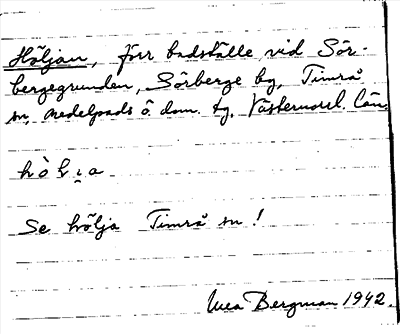 Höljan, förr badställe vid Sör-
bergegrunden, Sörberge by, Timrå
sn, Medelpads ö. dom. tg, Västernorrl. län
Se hölja Timrå sn!
Bergman 1942.